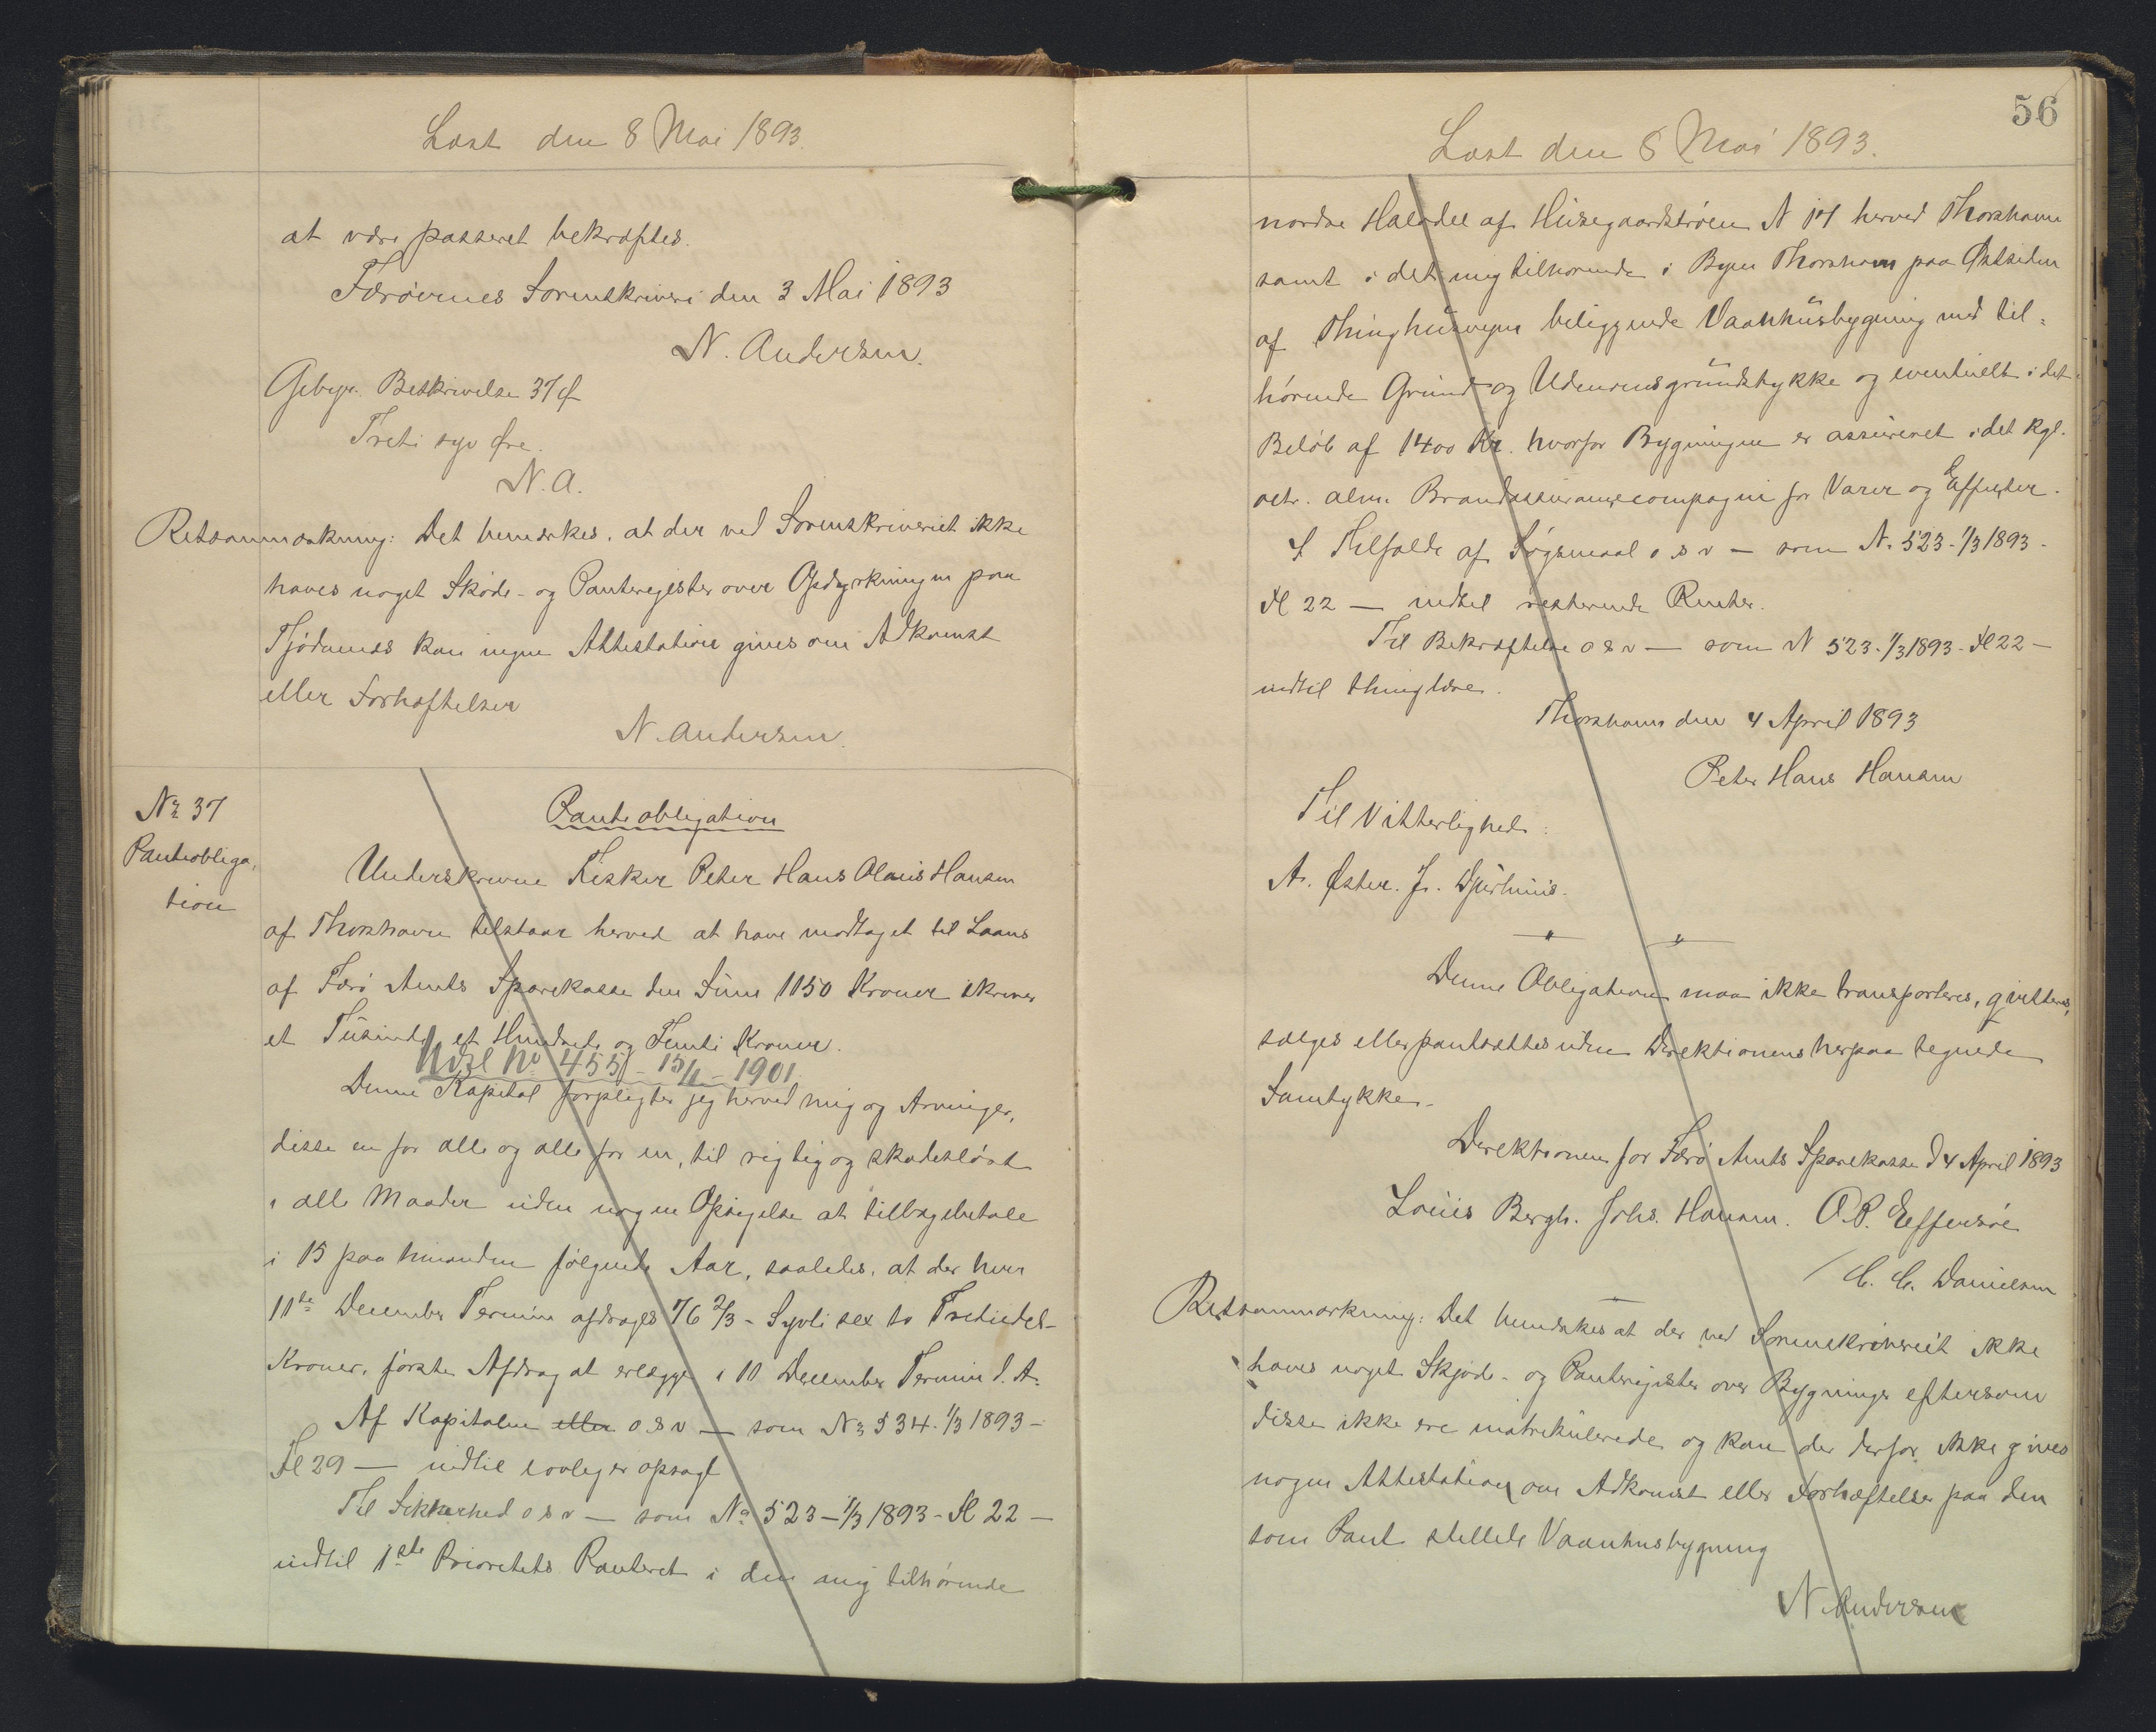 Læst den 8 Mai 1893.
at være passeret bekræftes.
Færöernes Sorenskriveri den 3 Mai 1893
N. Andersen.
Gebyr. Beskrivelse 37 Ø
Treti syv Øre.
N. A.
Retsanmærkning: Det bemærkes, at der ved Sorenskriveriet ikke
haves noget Skøde- og Panteregister over Opdyrkningen paa
kan ingen Attestation gives om Adkomst
eller Forhæftelser
N. Andersen.
Nr. 37
Panteobliga,
tion
Panteobligation
Underskrevne Fisker Peter Hans Olaus Hansen
af Thorshavn tilstaar herved at have modtaget til Laans
af Færö Amts Sparekasse den Sum 1150 Kroner skriver
et Tusinde et Hundrede og Femti Kroner.
Udsl No 455 - 15/11 - 1901
Denne Kapital forpligter jeg herved mig og Arvinger,
disse en for alle og alle for en, til rigtig og skadesløst
i alle Maader uden nogen Opsigelse at tilbagebetale
i 15 paa hinanden følgende Aar, saaledes, at der hver
11te December Termin afdrages 76 2/3 - Sytti sex to Trediedel-
Kroner, første Afdrag at erlægge i 11 December Termin d. A.
Af Kapitalen eller o s v — som Nr 534. 1/3 1893 -
Fl 29 — indtil lovlig er opsagt
Til Sikkerhed o s v — som No 523 - 1/3 1893 - Fl 22 —
indtil 1ste Prioritets Panteret i den mig tilhørende
56
Læst den 8 Mai 1893.
nordre Halvdel af Husegaardstrøen N 14 herved Thorshavn
samt i det mig tilhørende i Byen Thorshavn paa Østsiden
af Thinghusvejen beliggende Vaanhusbygning med til=
hørende Grund og Udenomsgrundstykke og eventuelt i det
Beløb af 1400 Kr. hvorfor Bygningen er assureret i det Kgl.
octr. alm. Brandassurancecompagni for Varer og Effecter.
I Tilfælde af Søgsmaal o s v — som N. 523 - 1/3 1893 -
Fl 22 — indtil resterende Renter.
Til Bekræftelse o s v — som N 523. 1/3 1893 - Fl 22 —
indtil thinglæses.
Thorshavn den 4 April 1893
Peter Hans Hansen
Til Vitterlighed:
A. Øster. J. Djurhuus.
Denne Obligation maa ikke transporteres, qvitteres,
sælges eller pantsættes uden Direktionens herpaa tegnede
Samtykke.
Direktionen for Færö Amts Sparekasse d 4 April 1893
Louis Bergh. Johs. Hansen. O. P. Effersöe
/ C. C. Danielsen
Retsanmærkning: Det bemærkes at der ved Sorenskriveriet ikke
haves noget Skjøde- og Panteregister over Bygninger eftersom
disse ikke ere matrikulerede og kan der derfor ikke gives
nogen Attestation om Adkomst eller Forhæftelser paa den
som Pant stillede Vaanhusbygning
N. Andersen